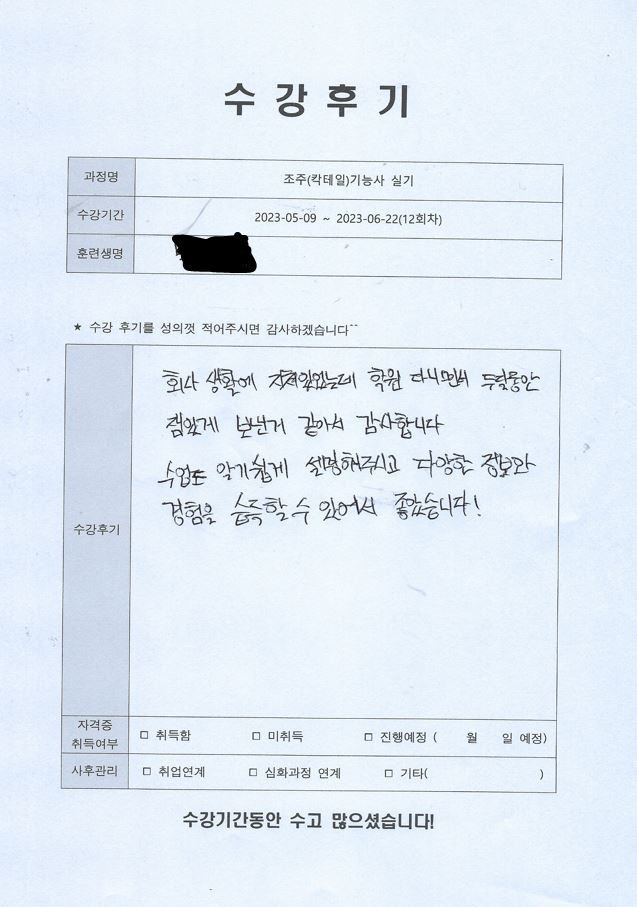 수강후기
과정명 조주(칵테일)기능사 실기
수강기간 2023-05-09 ~ 2023-06-22(12회차)
훈련생명
★ 수강 후기를 성의껏 적어주시면 감사하겠습니다^^
회사 생활에 지쳐있었는데 학원 다니면서 두달동안
잼있게 보낸거 같아서 감사합니다
수업도 알기쉽게 설명해주시고 다양한 정보와
수강후기
경험을 습득할 수 있어서 좋았습니다!
자격증
취득여부 □ 취득함 □ 미취득 □ 진행예정 ( 월 일 예정)
사후관리 □ 취업연계 □ 심화과정 연계 □ 기타( )
수강기간동안 수고 많으셨습니다!